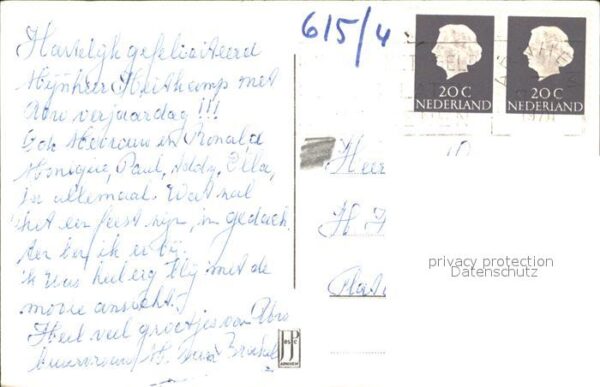 Hartelijk gefeliciteerd
Mijnheer Heithamp met
Uw verjaardag !!!
Ook Mevrouw en Ronald
Monique, Paul, Addy, Ella,
en allemaal. Wat zal
het een feest zijn, in gedach
ten ben ik er bij.
ik was heel erg blij met de
mooie ansicht.
Heel veel groetjes van Uw
buurvrouw H.
615/4
20 C
NEDERLAND
20 C
NEDERLAND
Heer
H.
privacy protection
Datenschutz
JP